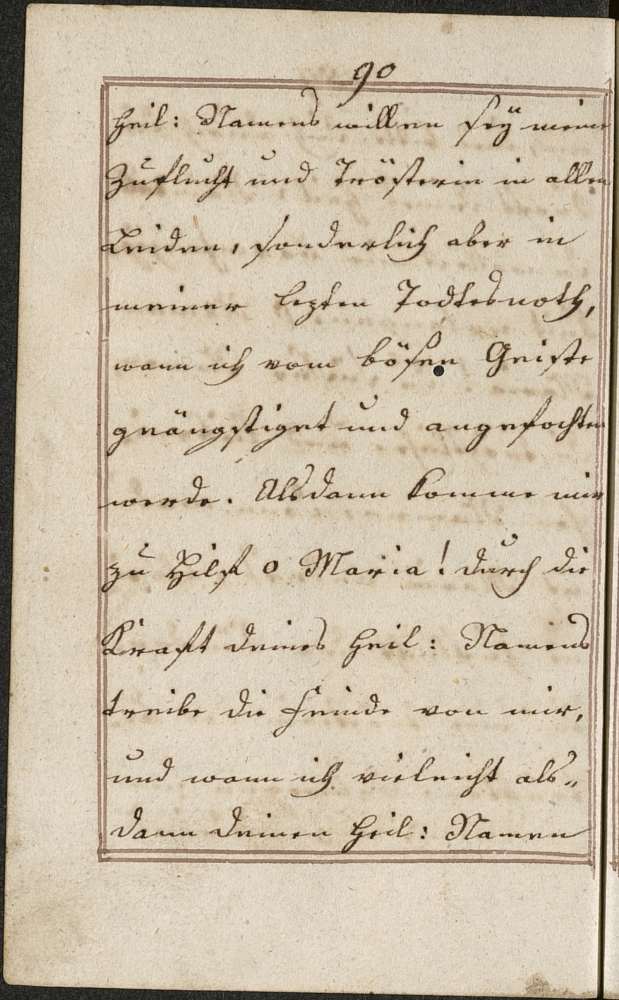 90
heil: Namens willen seÿ meine
Zuflucht und Trösterin in allen
Leiden, sonderlich aber in
meiner lezten Todtesnoth,
wann ich vom bösen Geiste
geängstiget und angefochten
werde. Alsdann komme mir
zu Hilf o Maria! durch die
Kraft deines heil: Namens
treibe die Feinde von mir,
und wann ich vieleicht als„
dann deinen heil: Namen